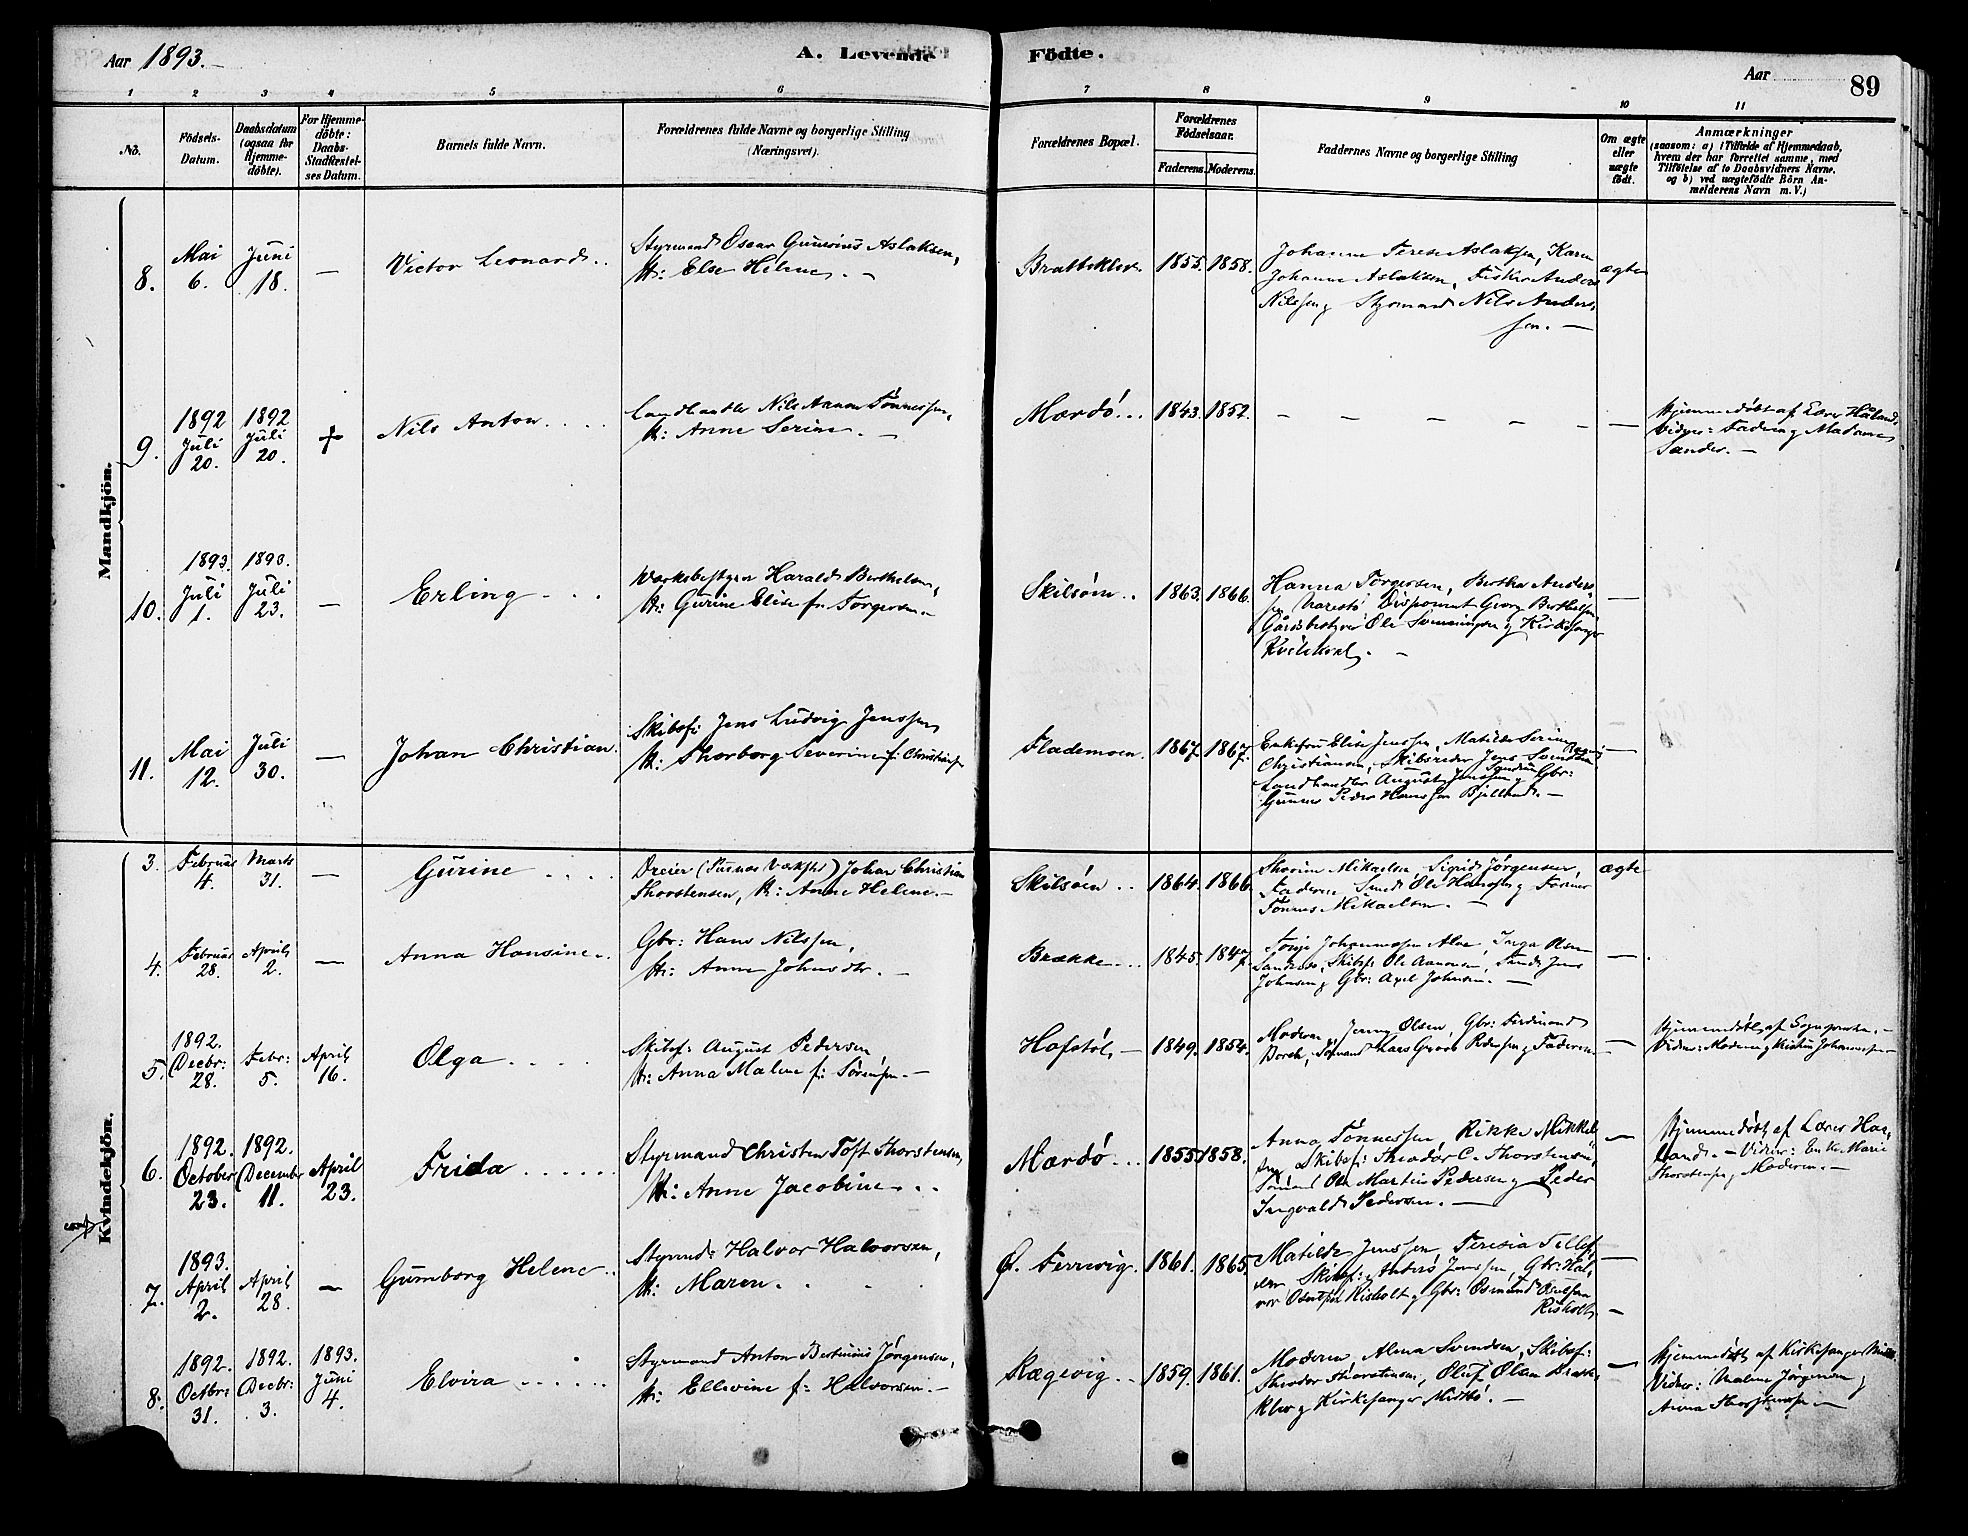 Aar 1893.
A. Levende
Födte.
Aar
89
1 2 3 4 5 6 7 8 9 10 11
No.
Födsels-
Datum.
Daabsdatum
(ogsaa for
Hjemme-
döbte).
For Hjemme-
döbte:
Daabs-
Stadfæstel-
ses Datum.
Barnets fulde Navn.
Forældrenes fulde Navne og borgerlige Stilling
(Næringsvei).
Forældrenes Bopæl.
Forældrenes
Födselsaar.
Faderens. Moderens.
Faddernes Navne og borgerlige Stilling
Om ægte
eller
uægte
født.
Anmærkninger
(saasom: a) i Tilfælde af Hjemmedaab,
hvem der har forrettet samme, med
Tilföielse af to Daabsvidners Navne,
og b) ved uægtefödte Börn An-
melderens Navn m. V.)
Mandkjön.
8.
Mai
6.
Juni
18.
—
Victor Leonard
Styrmand Oscar Gunerius Aslaksen,
H: Else Helene. —
Bratteklev
1855. 1858.
Johanne Terese Aslaksen, Karen
Johanne Aslaksen, Fisker Anders
Nilssen og Styrmand Nils Anders-
sen. —
ægte
9.
1892
Juli
20.
1892
Juli
20.
+
Nils Anton
Landhandler Nils Tønnessen,
H: Anne Serine. —
Mærdö
1843. 1852.
— — — — —
Hjemmedøbt af Lærer Håland,
Vidner: Faderen og Madame
Sander. —
10.
1893.
Juli
1.
1893.
Juli
23.
—
Erling
Værksbestyrer Harald Berthelsen,
H: Gurine Elise f. Torgersen —
Skilsöen
1863. 1866.
Hanna Torgersen, Bertha Anders-
sen Narestö, Disponent Georg Berthelsen
Gårdsbestyrer Ole og Kirkesanger
—
11.
Mai
12.
Juli
30.
—
Johan Christian.
Skibsf: Jens Ludvig Jenssen
H: Thorborg Severine f: Christians
Flademoen.
1867. 1867.
Enkefru Elise Jenssen, Matilde Serine
Christiansen, Skibsreder Jens Svendsen
Landhandler August Jenssen og Gbr:
Gunner Peder Hanssen Bjelland. —
—
Kvindekjön.
3.
Februar
4.
Marts
31.
—
Gurine
Dreier (Pusnes Værksted) Johan Christian
Thorstensen, H: Anne Helene —
Skilsöen
1864. 1866.
Thorine Mikaelsen Sigrid Jørgensen,
Faderen Smed Ole Hansen og Former
Tönnes Mikaelsen. —
ægte
4.
Februar
28.
April
2.
—
Anna Hansine
Gbr: Hans Nilssen,
H: Anne Johnsdtr. —
Brække
1845. 1847.
Johannessen Alve, Inga Olsen
Sandnes, Skibsf: Ole Aanonsen, Smed Jens
Johnsen og Gbr: Axel Johnsen. —
—
5.
1892.
Decbr:
28.
Febr:
5.
April
16.
Olga
Skibsf: August Pedersen
H: Anna Malene f: Sörensen. —
Hofstöl —
1849. 1854.
Moderen, Jenny Olsen, Gbr: Ferdinand
Borch, Sömand Lars Pedersen og Faderen —
—
Hjemmedøbt af Sognepresten. —
Vidner: Moderen og Kirstine Johannessen —
6.
1892.
October
23.
1892.
December
11.
April
23.
Frida
Styrmand Christen Toft Thorstensen,
H: Anne Jacobine
Mærdö
1855. 1858.
Anna Tönnessen, Rikke Mikkel-
sen Skibsf: Theodor C. Thorstensen,
Sömand Ole Martin Pedersen og Peder
Ingvald Pedersen. —
—
Hjemmedøbt af Lærer Haa-
land. — Vidner: Enke Marie
Thorstensen og Moderen. —
7.
1893.
April
2.
April
28.
—
Gumborg Helene
Styrmd: Halvor Halvorsen,
H: Maren.
Ø. Terrevig.
1861. 1865.
Matilde Jenssen, Teresia Tellef-
sen Skibsf: Anders Jenssen, Gbr: Hal-
vor Risholt og Gbr: Osmund
Risholt. —
—
8.
1892.
Octbr:
31.
1892.
Decbr:
3.
1893.
Juni
4.
Elvira
Styrmand Anton Bertinius Jörgensen,
H: Ellevine f: Halvorsen. —
Rægevig
1859. 1861.
Moderen, Alma Svendsen, Skibsf:
Theodor Thorstensen, Oluf Olsen Bratte-
klev og Kirkesanger Midtbö. —
—
Hjemmedøbt af Kirkesanger
Vidner: Maline Jörgensen og
Anna Thorstensen —